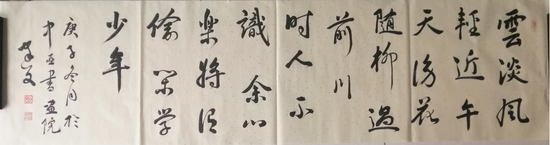 雲淡風
輕近午
天傍花
隨柳過
前川
時人不
識余心
樂將谓
偷闲学
少年
庚子冬月於
中亚書画院